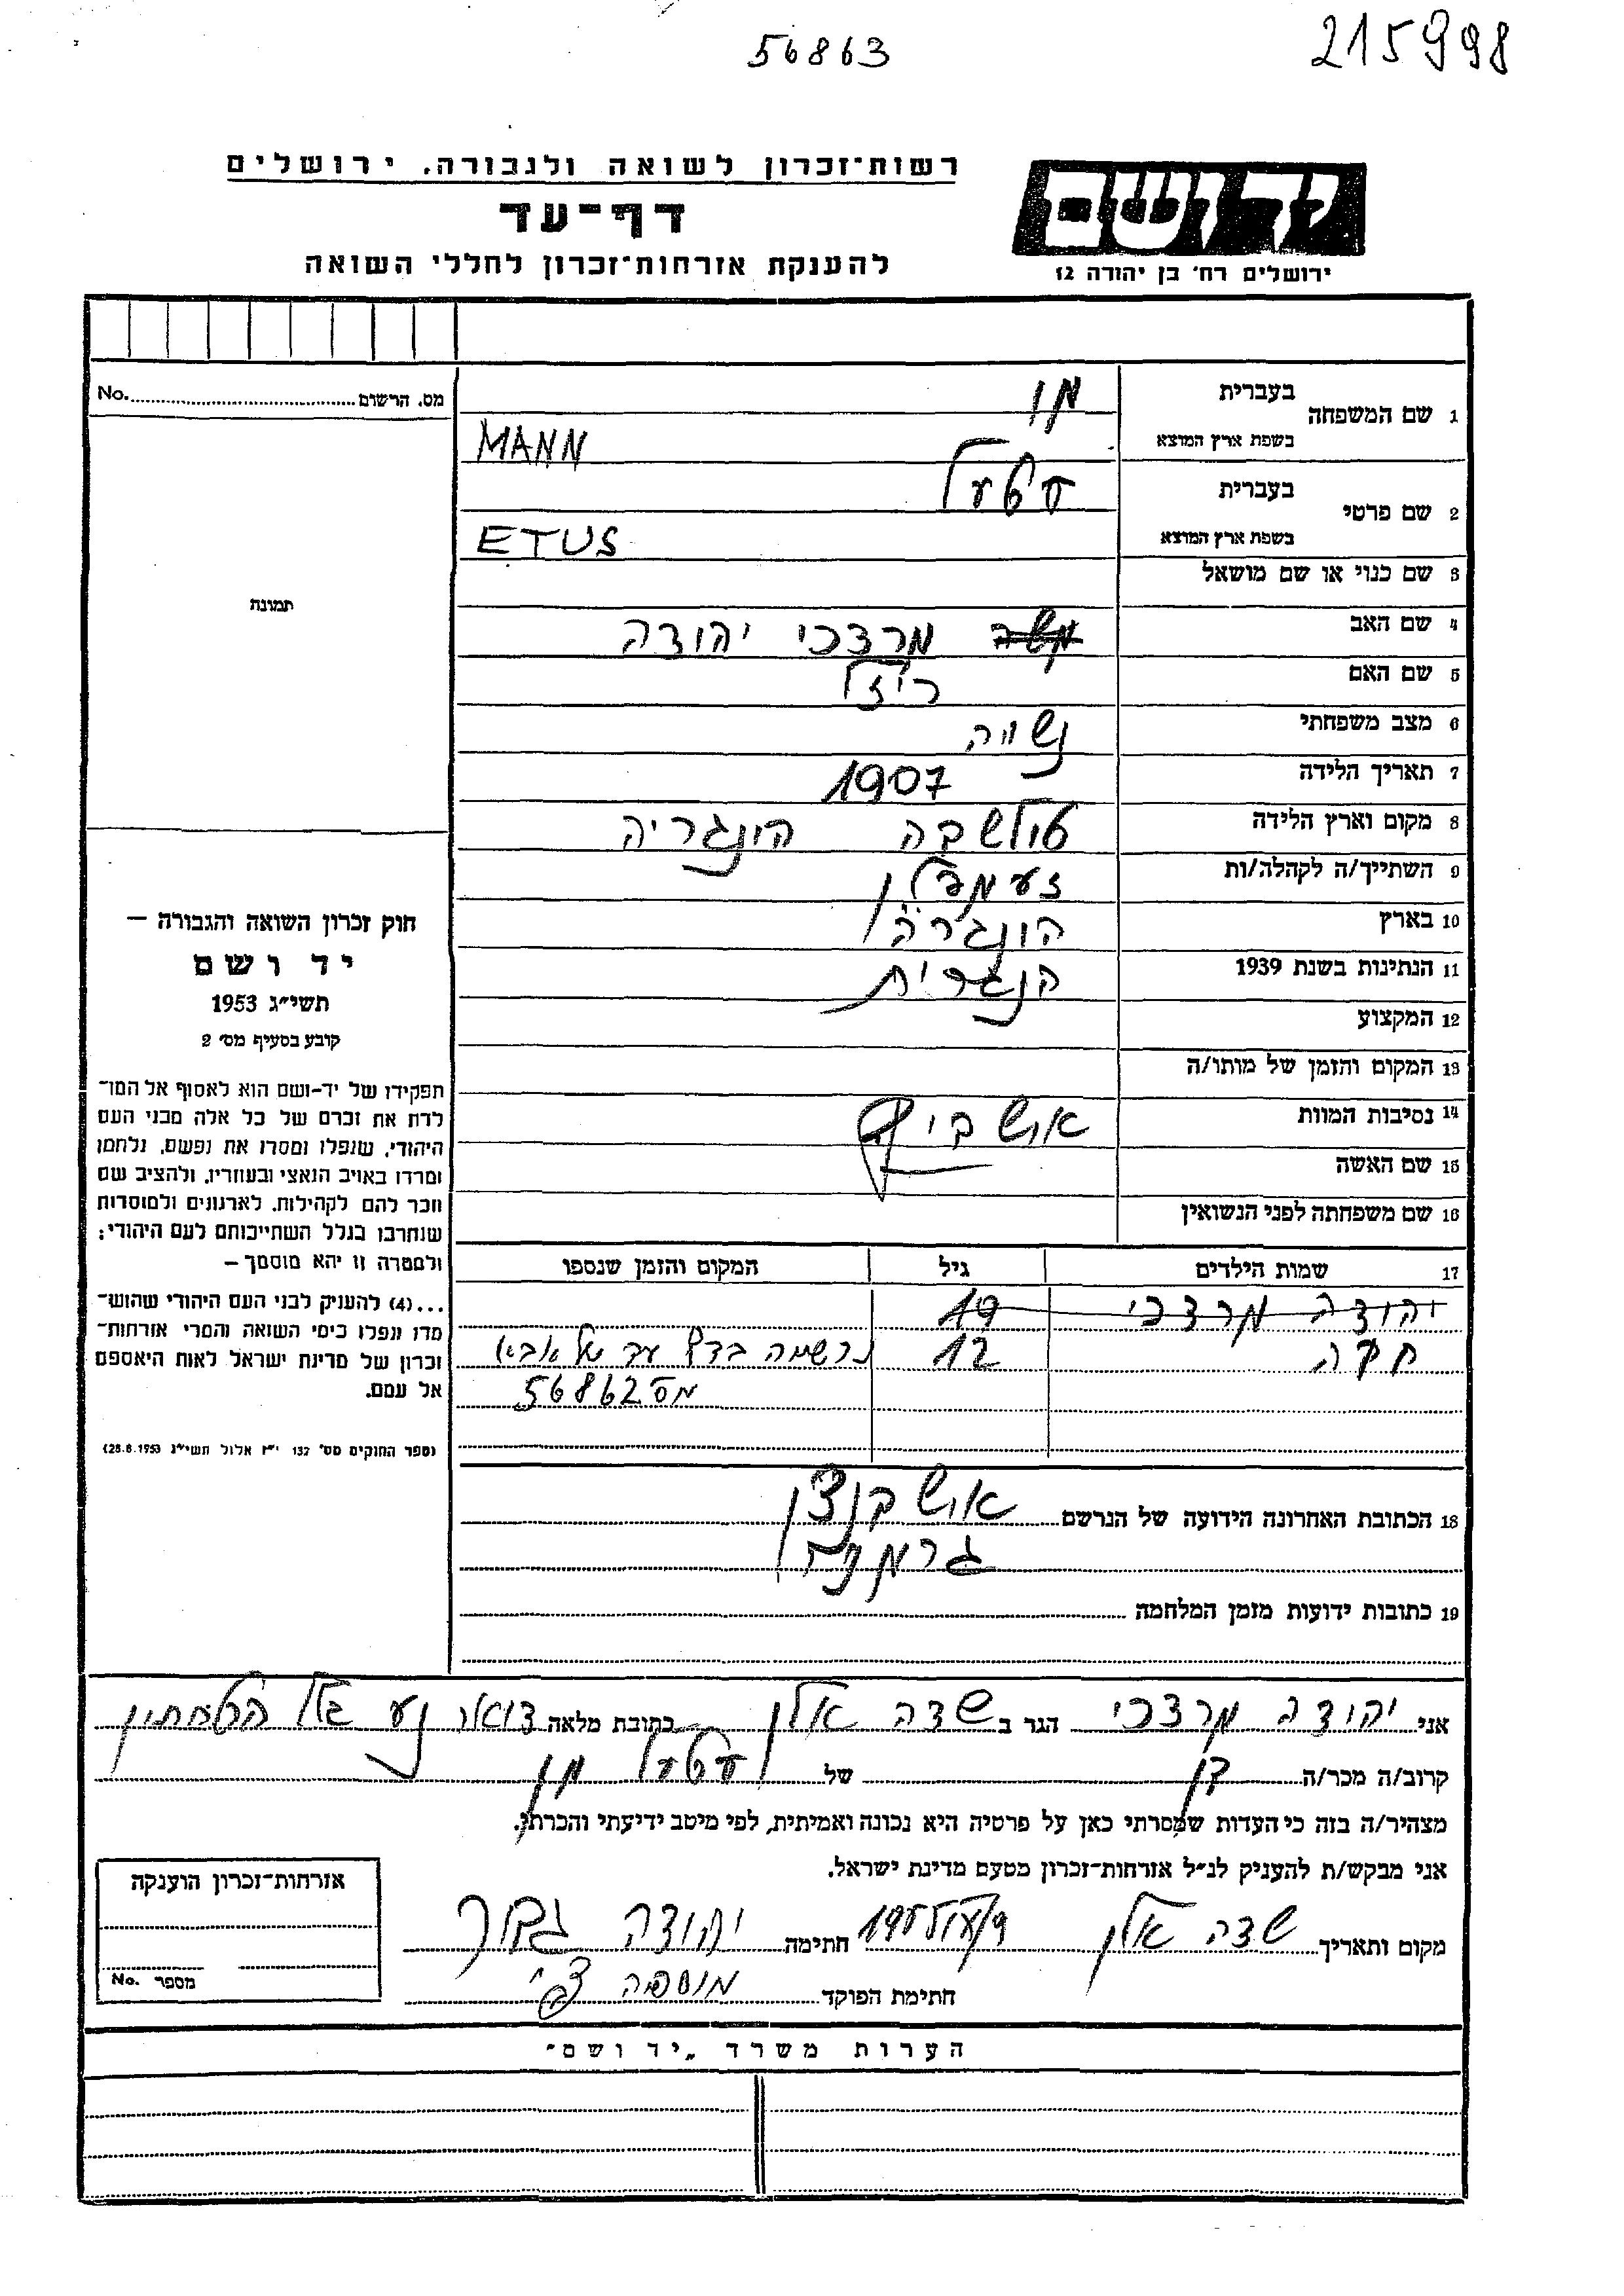 56863
215998
יד ושם
רשות־זכרון לשואה ולגבורה. ירושלים
דף־עד
להענקת אזרחות־זכרון לחללי השואה
ירושלים רח׳ בן יהודה 12
מס. הרשום No.
תמונה
1 שם המשפחה בעברית מן
בשפת ארץ המוצא MANN
2 שם פרטי בעברית עטעל
בשפת ארץ המוצא ETUS
3 שם כנוי או שם מושאל
4 שם האב משה מרדכי יהודה
5 שם האם ריזל
6 מצב משפחתי נשואה
7 תאריך הלידה 1907
8 מקום וארץ הלידה טולשבה הונגריה
9 השתייך/ה לקהלה/ות זעמפלין
10 בארץ הונגריה
11 הנתינות בשנת 1939 הנגרית
12 המקצוע
13 המקום והזמן של מותו/ה
14 נסיבות המוות
15 שם האשה
16 שם משפחתה לפני הנשואין
17 שמות הילדים גיל המקום והזמן שנספו
יהודה מרדכי 19
12 נרשמה בדף עד של אבא
מס 56862
18 הכתובת האחרונה הידועה של הנרשם
גרמניה
19 כתובות ידועות מזמן המלחמה
חוק זכרון השואה והגבורה —
יד ושם
תשי״ג 1953
קובע בסעיף מס׳ 2
תפקידו של יד-ושם הוא לאסוף אל המו־
לדת את זכרם של כל אלה מבני העם
היהודי, שנפלו ומסרו את נפשם, נלחמו
ומרדו באויב הנאצי ובעוזריו, ולהציב שם
וזכר להם לקהילות, לארגונים ולמוסדות
שנחרבו בגלל השתייכותם לעם היהודי;
ולמטרה זו יהא מוסמך —
...(4) להעניק לבני העם היהודי שהוש־
מדו ונפלו בימי השואה והמרי אזרחות־
זכרון של מדינת ישראל לאות היאספם
אל עמם.
(ספר החוקים מס׳ 132 י״ז אלול תשי״ג 28.8.1953)
אני יהודה מרדכי הגר ב שדה אילן כתובת מלאה דואר נע גליל התחתון
קרוב/ה מכר/ה בן של עטעל מן
מצהיר/ה בזה כי העדות שמסרתי כאן על פרטיה היא נכונה ואמיתית, לפי מיטב ידיעתי והכרתי.
אני מבקש/ת להעניק לנ״ל אזרחות־זכרון מטעם מדינת ישראל.
מקום ותאריך שדה אילן חתימה יהודה
חתימת הפוקד
אזרחות־זכרון הוענקה
מספר No.
הערות משרד „יד ושם״